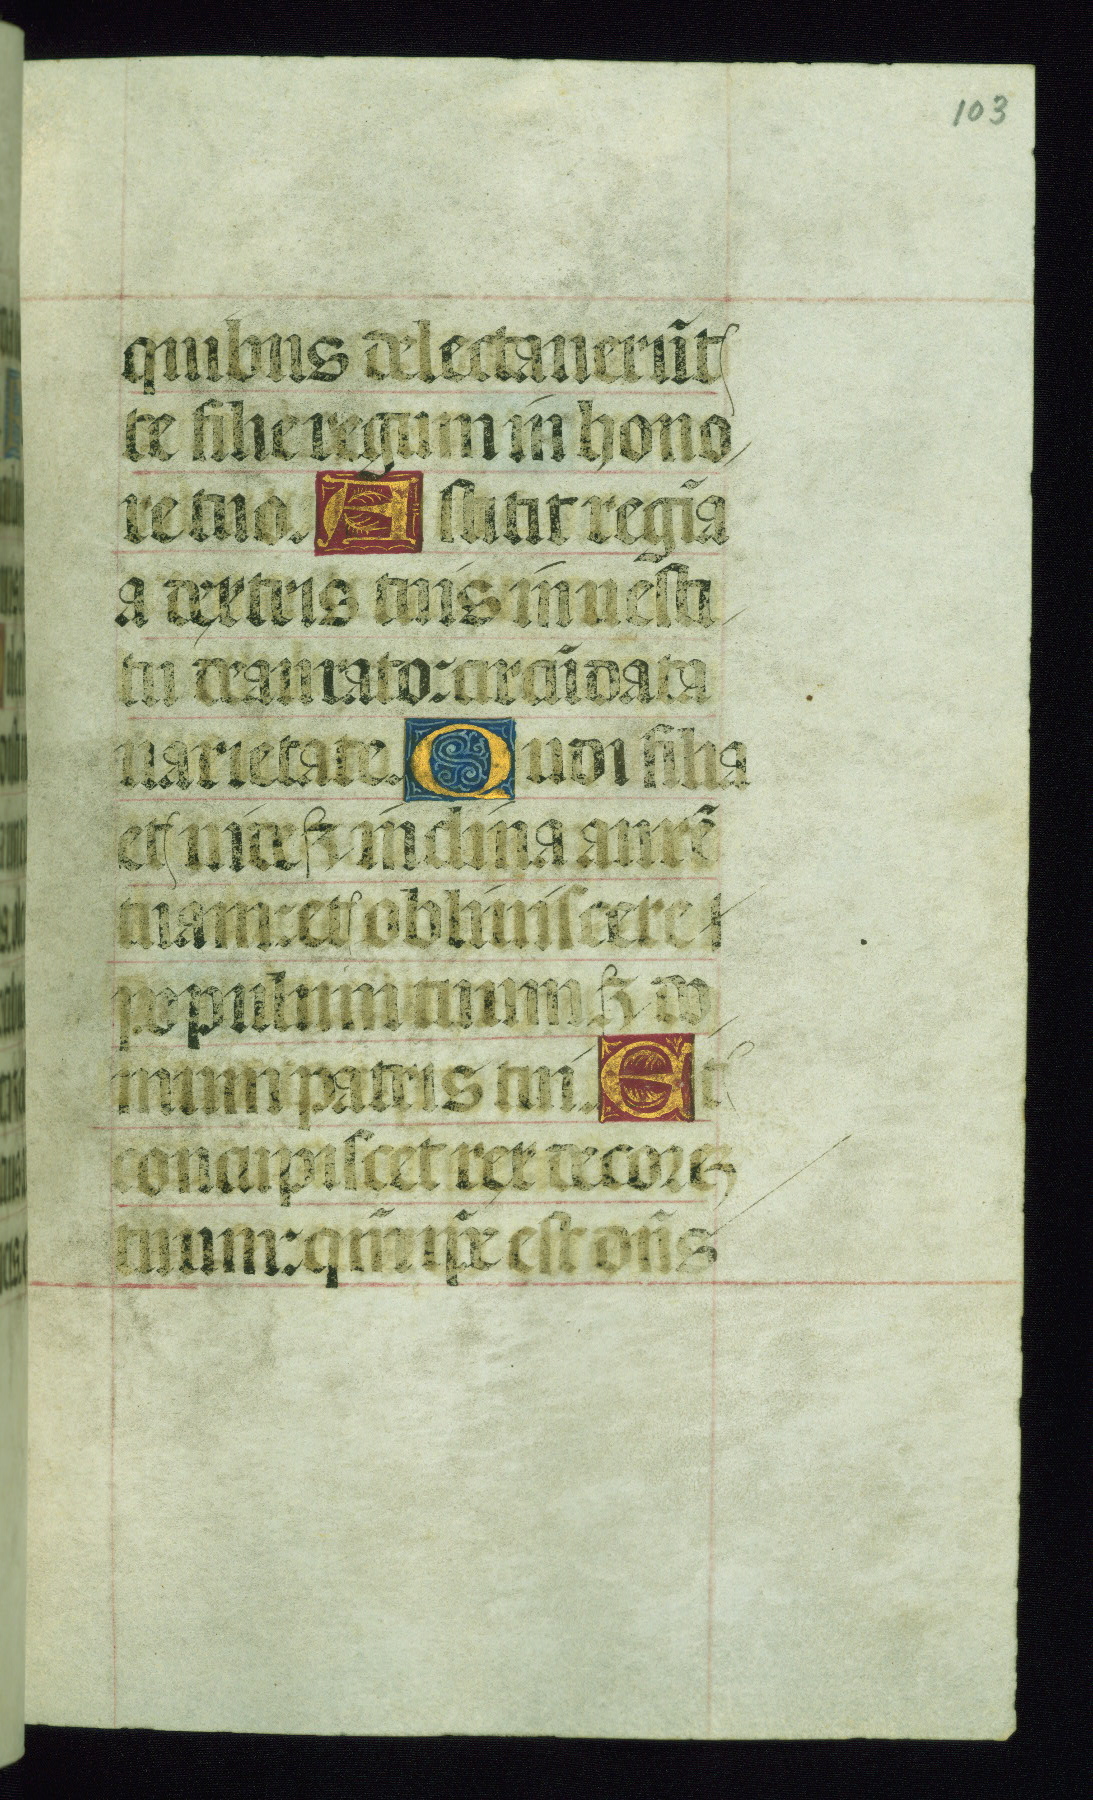 103
quibus delectauerūt
te filie regum in hono
re tuo. A stitit regīa
a dextris tuis in uesti
tu deaurato: circūdata
uarietate. Audi filia
et uideꝫ inclina aurē
tuam: et obliuiscere
populum tuumꝫ do
mum patris tui. Et
concupiscet rex decoreꝫ
tuum: qm̄ ip̄e est dn̄s